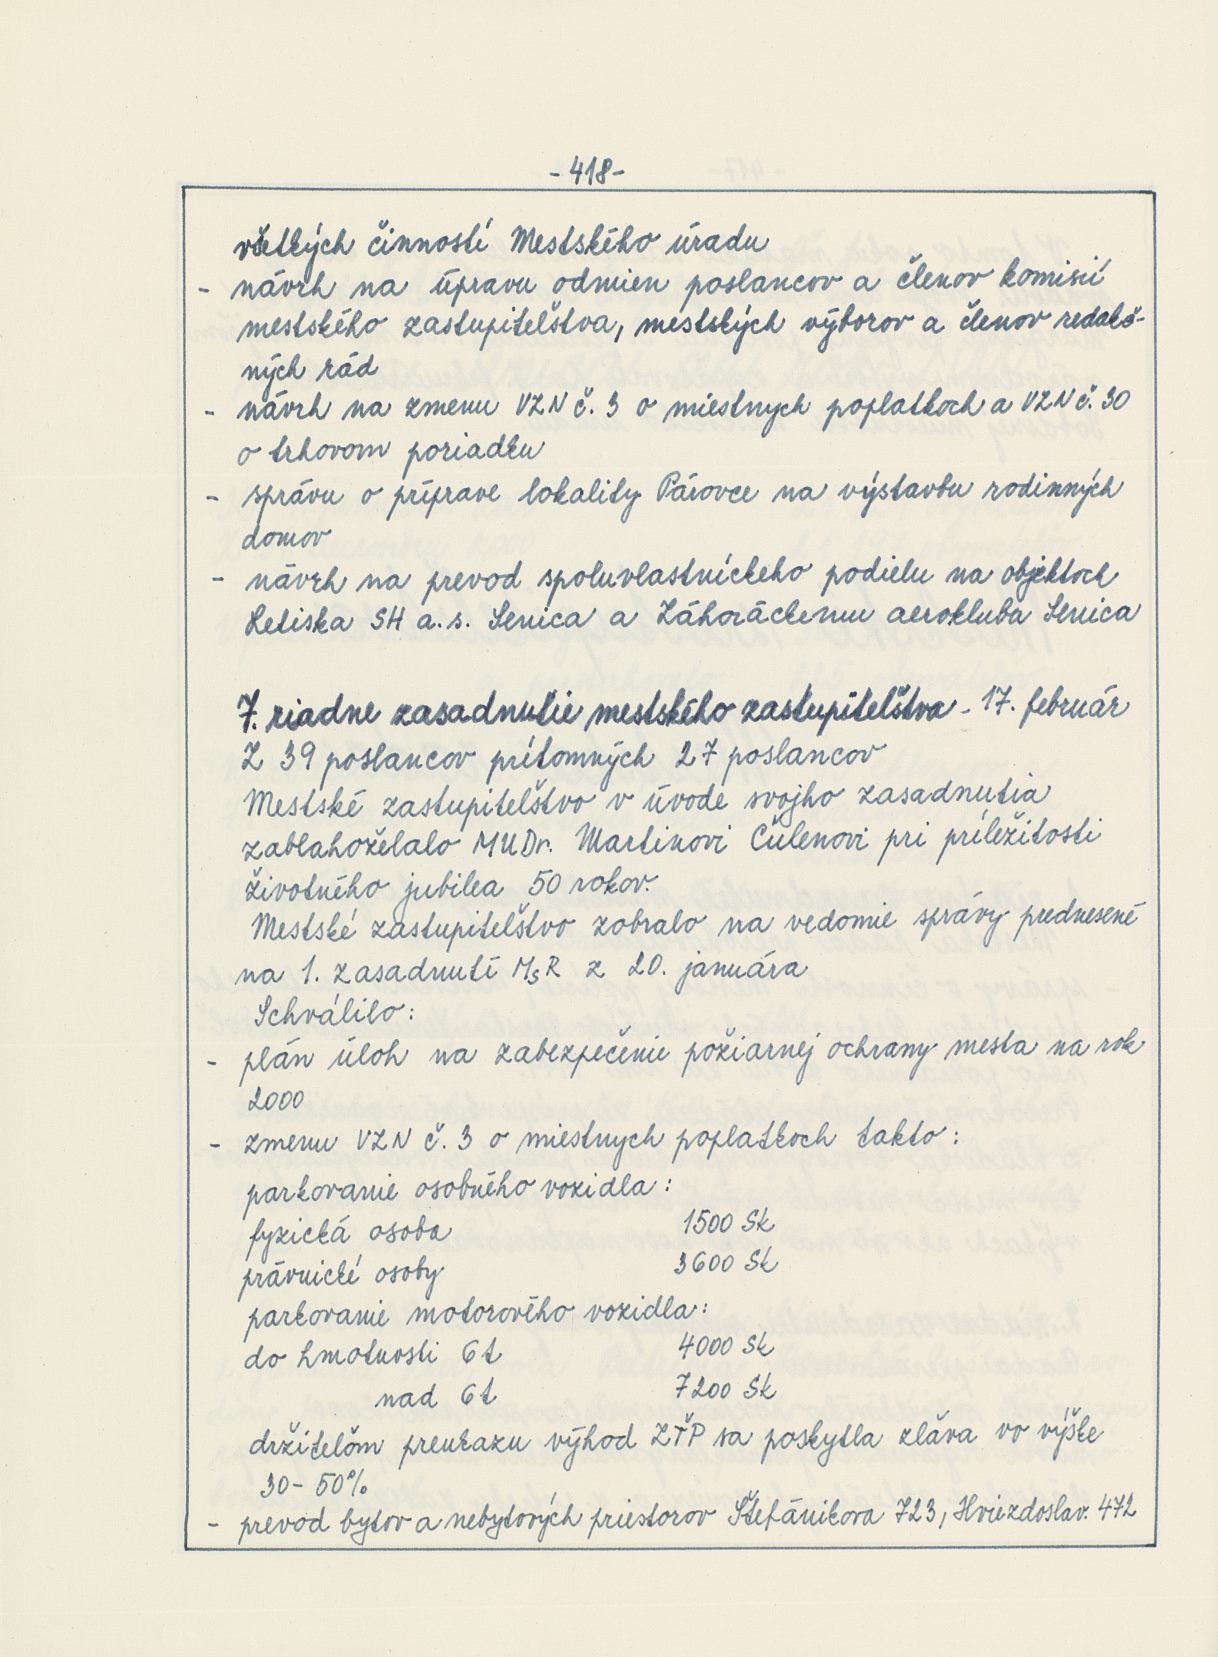 -418-
všetkých činností Mestského úradu
- návrh na úpravu odmien poslancov a členov komisií
mestského zastupiteľstva, mestských výborov a členov redakč-
ných rád
- návrh na zmenu VZN č. 3 o miestnych poplatkoch a VZN č. 30
o trhovom poriadku
- správu o príprave lokality Párovce na výstavbu rodinných
domov
- návrh na prevod spoluvlastníckeho podielu na objektoch
Letiska SH a.s. Senica a Záhoráckemu aerokluba Senica
7. riadne zasadnutie mestského zastupiteľstva - 17. február
Z 39 poslancov prítomných 27 poslancov
Mestské zastupiteľstvo v úvode svojho zasadnutia
zablahoželalo MUDr. Martinovi Čulenovi pri príležitosti
životného jubilea 50 rokov.
Mestské zastupiteľstvo zobralo na vedomie správy prednesené
na 1. zasadnutí MsR z 20. januára
Schválilo:
- plán úloh na zabezpečenie požiarnej ochrany mesta na rok
2000
- zmenu VZN č. 3 o miestnych poplatkoch takto:
parkovanie osobného vozidla:
fyzická osoba 1500 Sk
právnické osoby 3600 Sk
parkovanie motorového vozidla:
do hmotnosti 6t 4000 Sk
nad 6t 7200 Sk
držiteľom preukazu výhod ZŤP sa poskytla zľava vo výške
30-50%
- prevod bytov a nebytových priestorov Štefánikova 723, Hviezdoslav. 472